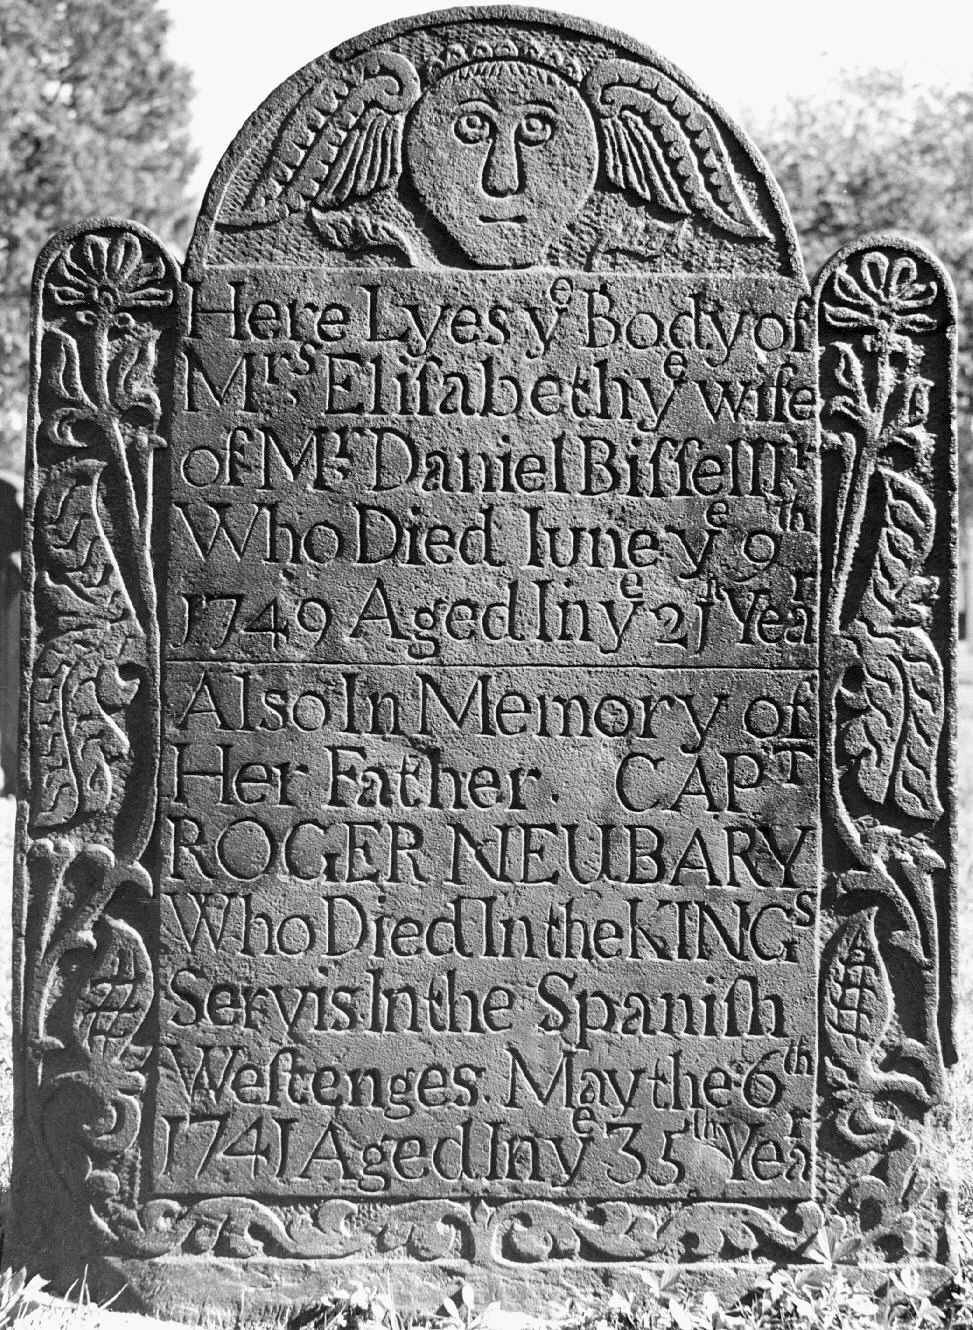 Here Lyes yᵉ Body of
Mʳˢ Eliſabeth yᵉ wife
of Mʳ Daniel Biſſell Jʳ
Who Died Iune yᵉ 9ᵗʰ
1749 Aged In yᵉ 21ˢᵗ Yeaʳ
Also In Memory of
Her Father. CAPᵀ
ROGER NEUBARY
Who Died In the KINGˢ
Servis In the Spaniſh
Weſtenges May the 6ᵗʰ
1741 Aged In yᵉ 35ᵗʰ Yeaʳ